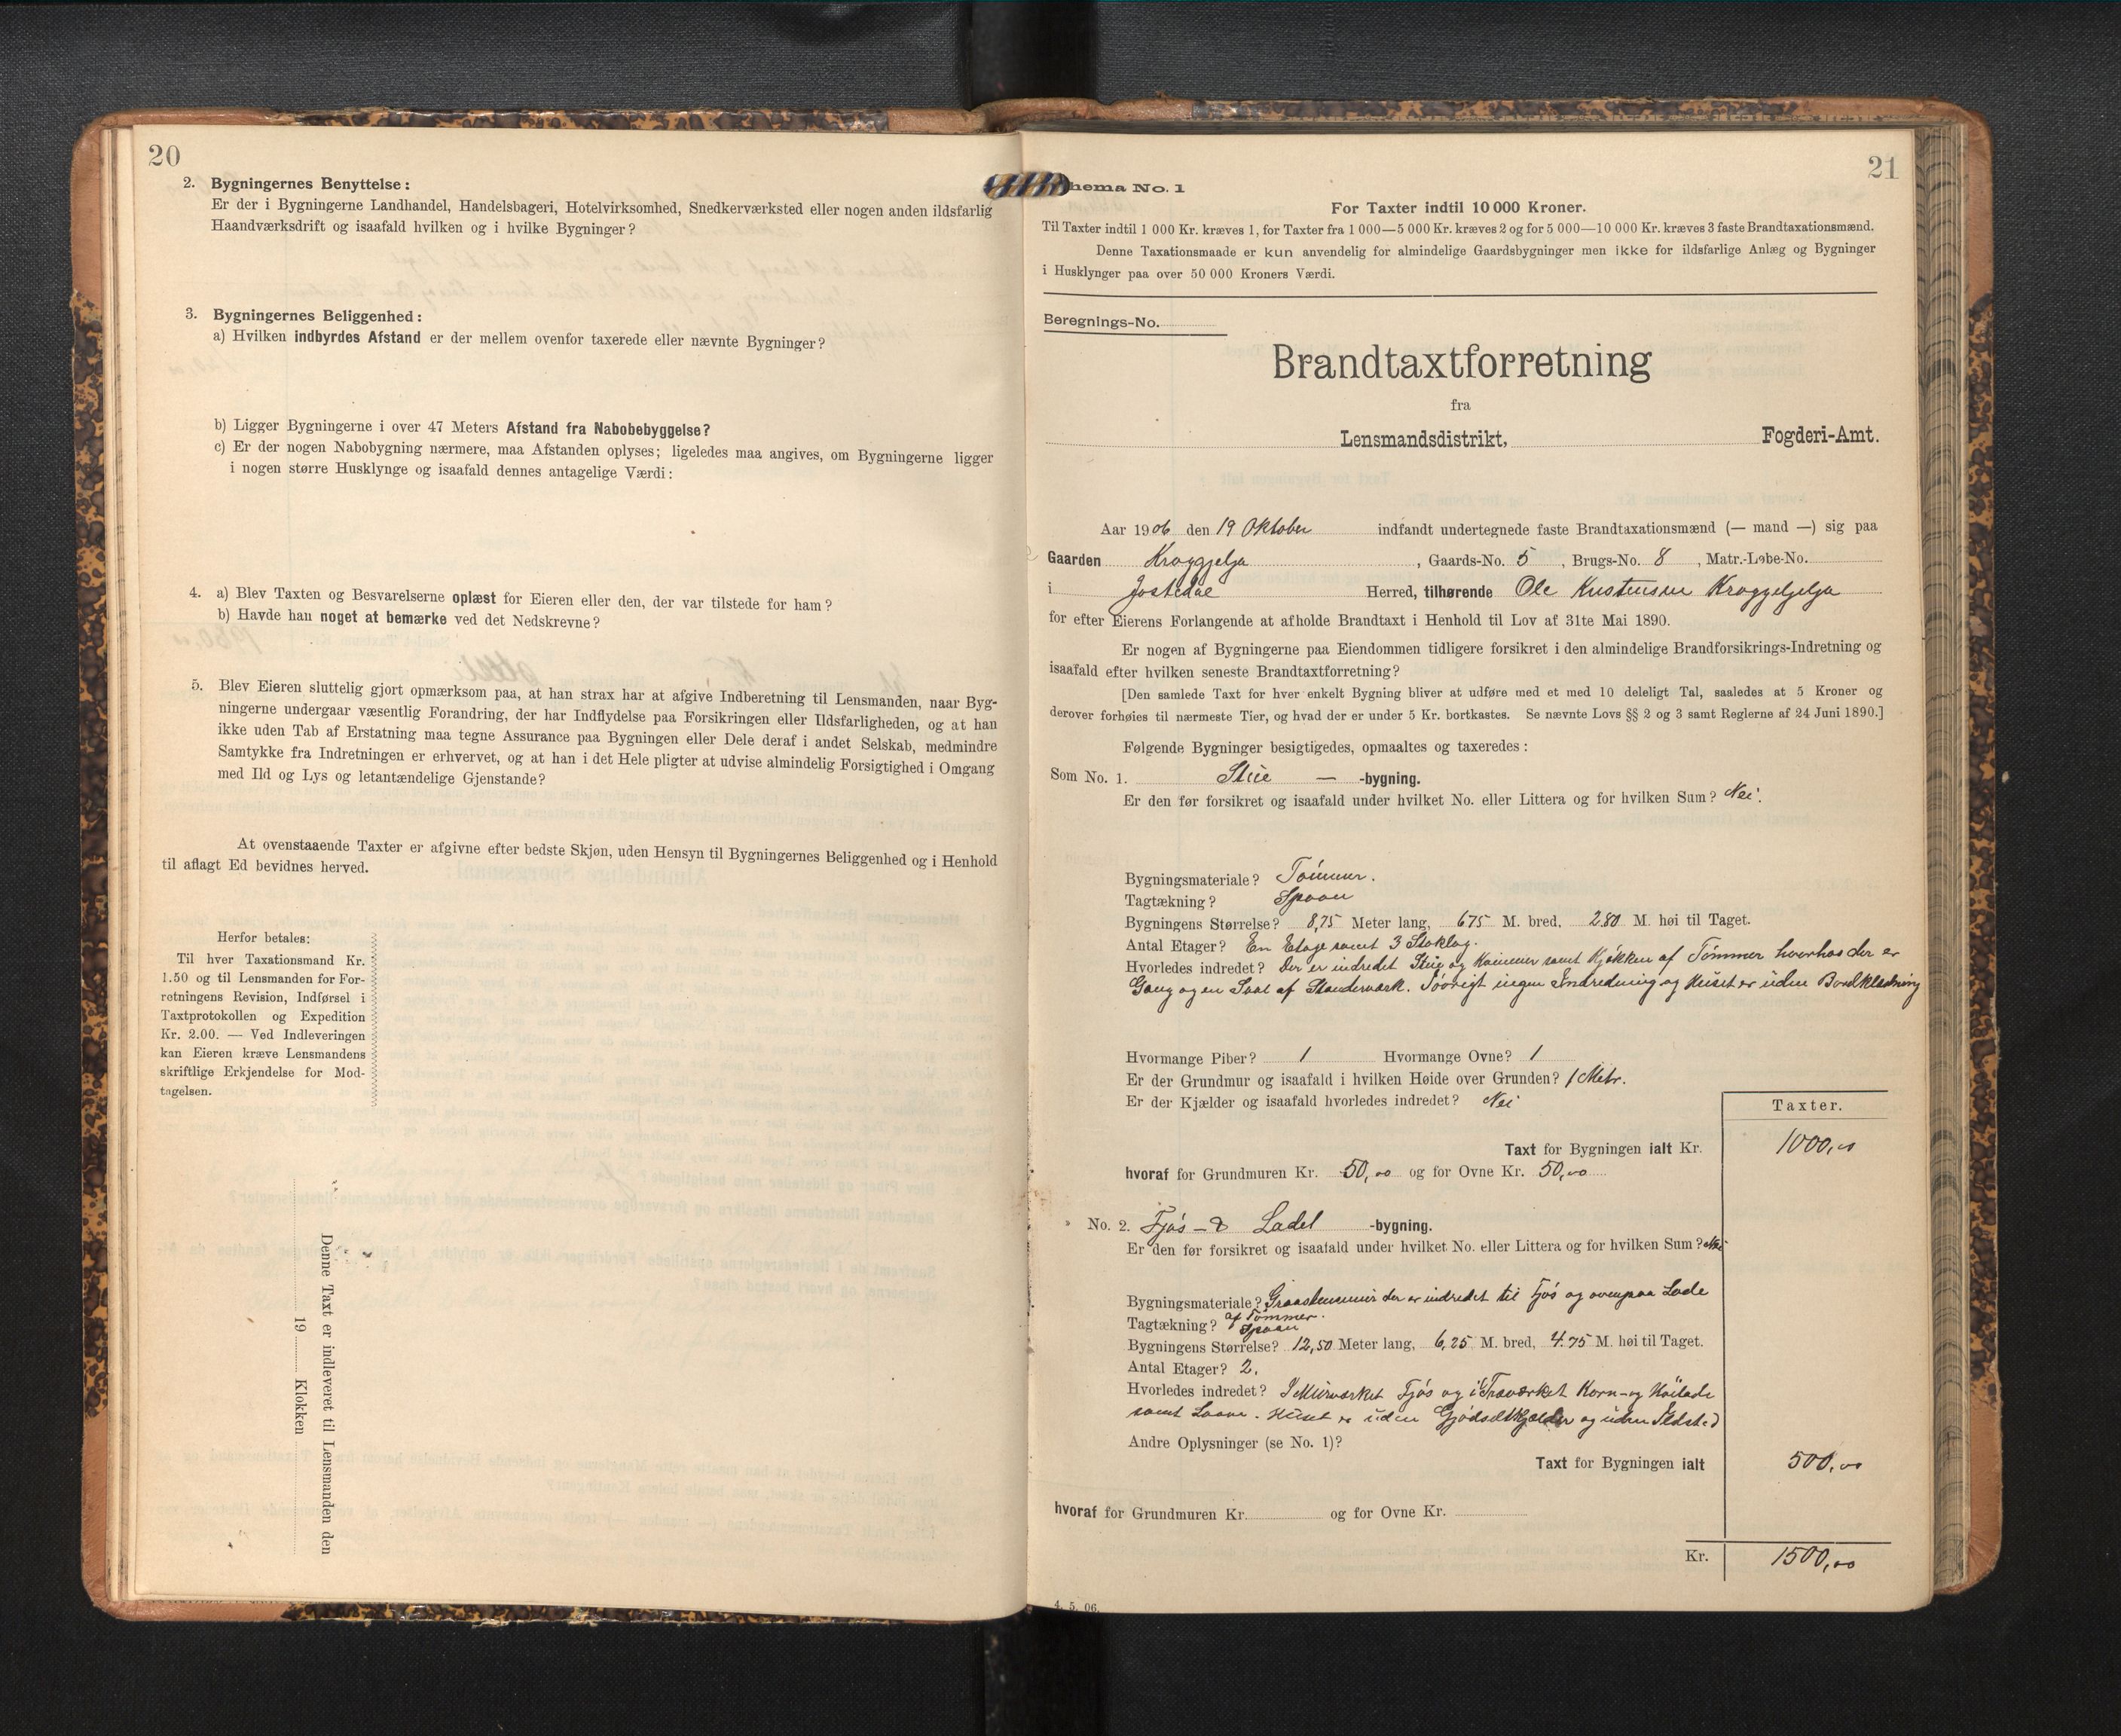 20
2. Bygningernes Benyttelse:
Er der i Bygningerne Landhandel, Handelsbageri, Hotelvirksomhed, Snedkerværksted eller nogen anden ildsfarlig
Haandværksdrift og isaafald hvilken og i hvilke Bygninger?
3. Bygningernes Beliggenhed:
a) Hvilken indbyrdes Afstand er der mellem ovenfor taxerede eller nævnte Bygninger?
b) Ligger Bygningerne i over 47 Meters Afstand fra Nabobebyggelse?
c) Er der nogen Nabobygning nærmere, maa Afstanden oplyses; ligeledes maa angives, om Bygningerne ligger
i nogen større Husklynge og isaafald dennes antagelige Værdi:
4. a) Blev Taxten og Besvarelserne oplæst for Eieren eller den, der var tilstede for ham?
b) Havde han noget at bemærke ved det Nedskrevne?
5. Blev Eieren sluttelig gjort opmærksom paa, at han strax har at afgive Indberetning til Lensmanden, naar Byg-
ningerne undergaar væsentlig Forandring, der har Indflydelse paa Forsikringen eller Ildsfarligheden, og at han
ikke uden Tab af Erstatning maa tegne Assurance paa Bygningen eller Dele deraf i andet Selskab, medmindre
Samtykke fra Indretningen er erhvervet, og at han i det Hele pligter at udvise almindelig Forsigtighed i Omgang
med Ild og Lys og letantændelige Gjenstande?
At ovenstaaende Taxter er afgivne efter bedste Skjøn, uden Hensyn til Bygningernes Beliggenhed og i Henhold
til aflagt Ed bevidnes herved.
Herfor betales:
Til hver Taxationsmand Kr.
1.50 og til Lensmanden for For-
retningens Revision, Indførsel i
Taxtprotokollen og Expedition
Kr. 2.00. — Ved Indleveringen
kan Eieren kræve Lensmandens
skriftlige Erkjendelse for Mod-
tagelsen.
Denne Taxt er indleveret til Lensmanden den
19 Klokken
21
hema No. 1
For Taxter indtil 10 000 Kroner.
Til Taxter indtil 1 000 Kr. kræves 1, for Taxter fra 1 000—5 000 Kr. kræves 2 og for 5 000—10 000 Kr. kræves 3 faste Brandtaxationsmænd.
Denne Taxationsmaade er kun anvendelig for almindelige Gaardsbygninger men ikke for ildsfarlige Anlæg og Bygninger
i Husklynger paa over 50 000 Kroners Værdi.
Beregnings-No.
Brandtaxtforretning
fra
Lensmandsdistrikt, Fogderi-Amt.
Aar 1906 den 19 Oktober indfandt undertegnede faste Brandtaxationsmænd (— mand —) sig paa
Gaarden Kroggjelja, Gaards-No. 5, Brugs-No. 8, Matr.-Løbe-No.
i Jostedal Herred, tilhørende Ole Kristensen
for efter Eierens Forlangende at afholde Brandtaxt i Henhold til Lov af 31te Mai 1890.
Er nogen af Bygningerne paa Eiendommen tidligere forsikret i den almindelige Brandforsikrings-Indretning og
isaafald efter hvilken seneste Brandtaxtforretning?
[Den samlede Taxt for hver enkelt Bygning bliver at udføre med et med 10 deleligt Tal, saaledes at 5 Kroner og
derover forhøies til nærmeste Tier, og hvad der er under 5 Kr. bortkastes. Se nævnte Lovs §§ 2 og 3 samt Reglerne af 24 Juni 1890.]
Følgende Bygninger besigtigedes, opmaaltes og taxeredes:
Som No. 1. Stue — -bygning.
Er den før forsikret og isaafald under hvilket No. eller Littera og for hvilken Sum? Nei.
Bygningsmateriale? Tömmer.
Tagtækning? Spaan
Bygningens Størrelse? 8,75 Meter lang, 675 M. bred, 280 M. høi til Taget.
Antal Etager? En Etage samt 3 Stoklag.
Hvorledes indredet? Der er indredet Stue og Kammer samt Kjøkken af Tömmer hvorhos der er
Gang og en Sval af Standerværk. Iövrigt ingen Indredning og Huset er uden Bordklædning
Hvormange Piber? 1 Hvormange Ovne? 1
Er der Grundmur og isaafald i hvilken Høide over Grunden? 1 Metr.
Er der Kjælder og isaafald hvorledes indredet? Nei
Taxter.
Taxt for Bygningen ialt Kr. 1000,00
hvoraf for Grundmuren Kr. 50,00 og for Ovne Kr. 50,00
" No. 2. Fjös - & Lade -bygning.
Er den før forsikret og isaafald under hvilket No. eller Littera og for hvilken Sum? Nei
Bygningsmateriale? Graastensmur der er indredet til Fjös og ovenpaa Lade
af Tömmer.
Tagtækning? Spaan
Bygningens Størrelse? 12,50 Meter lang, 6,25 M. bred, 4.75 M. høi til Taget.
Antal Etager? 2.
Hvorledes indredet? I Murværket Fjös og i Træværket Korn- og Höilade
samt Laave. Huset er uden Gjödselkjælder og uden Ildsted
Andre Oplysninger (se No. 1)?
Taxt for Bygningen ialt 500,00
hvoraf for Grundmuren Kr. og for Ovne Kr.
Kr. 1500,00
4. 5. 06.